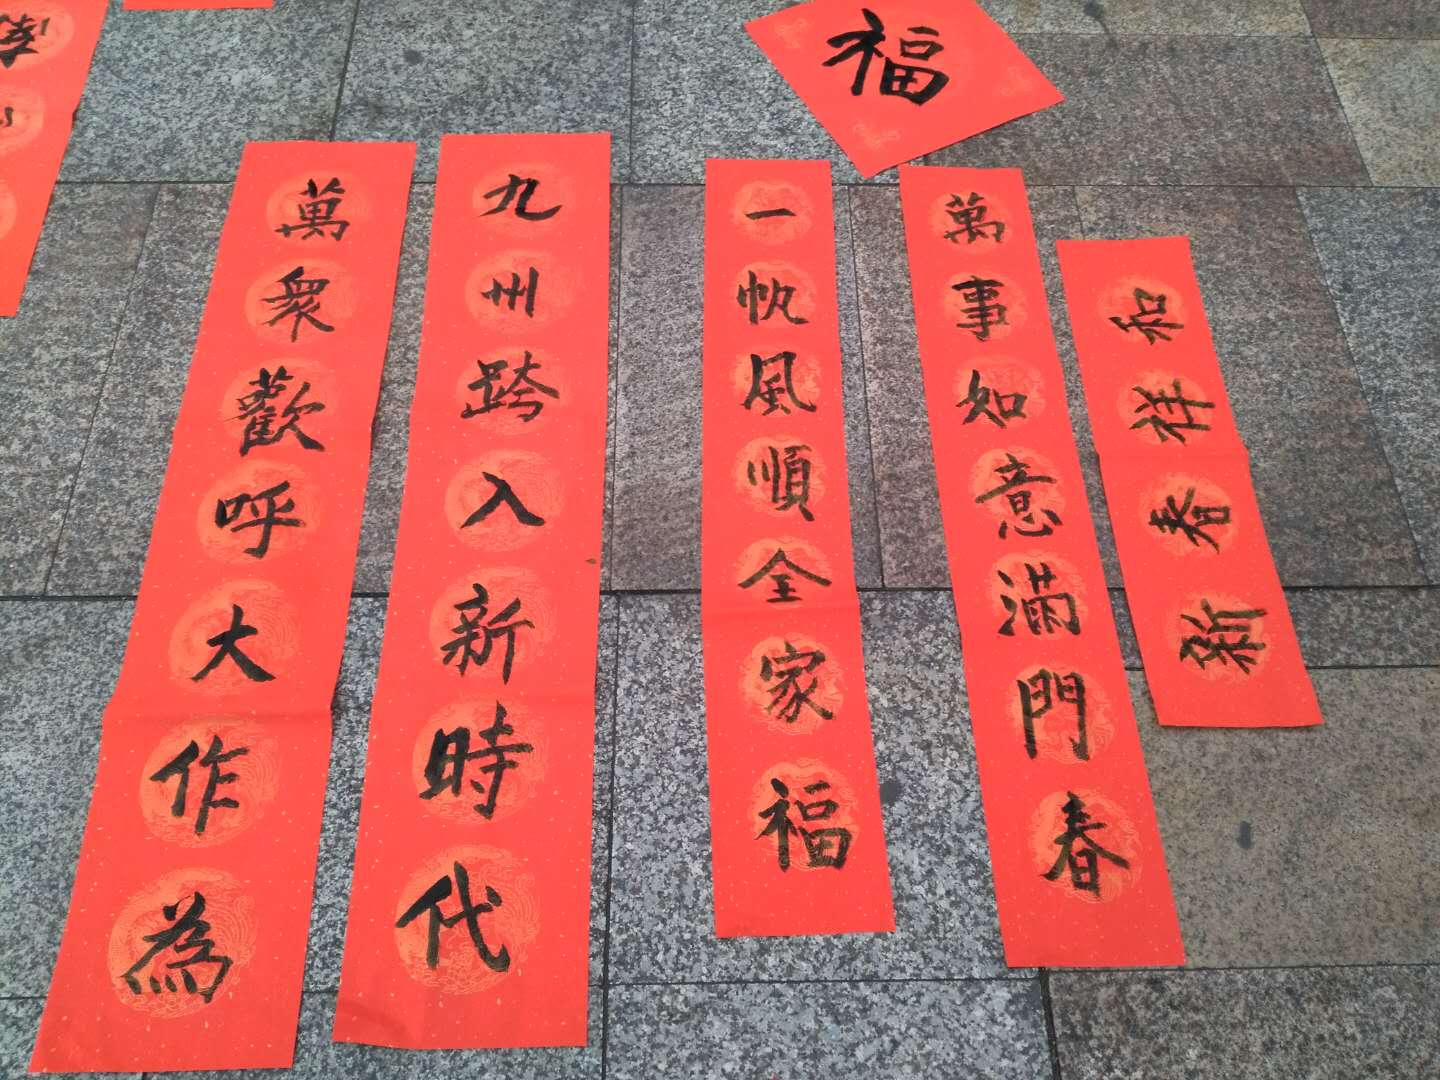 福
新春祥和
萬事如意滿門春
一帆風順全家福
九州跨入新時代
萬衆歡呼大作為